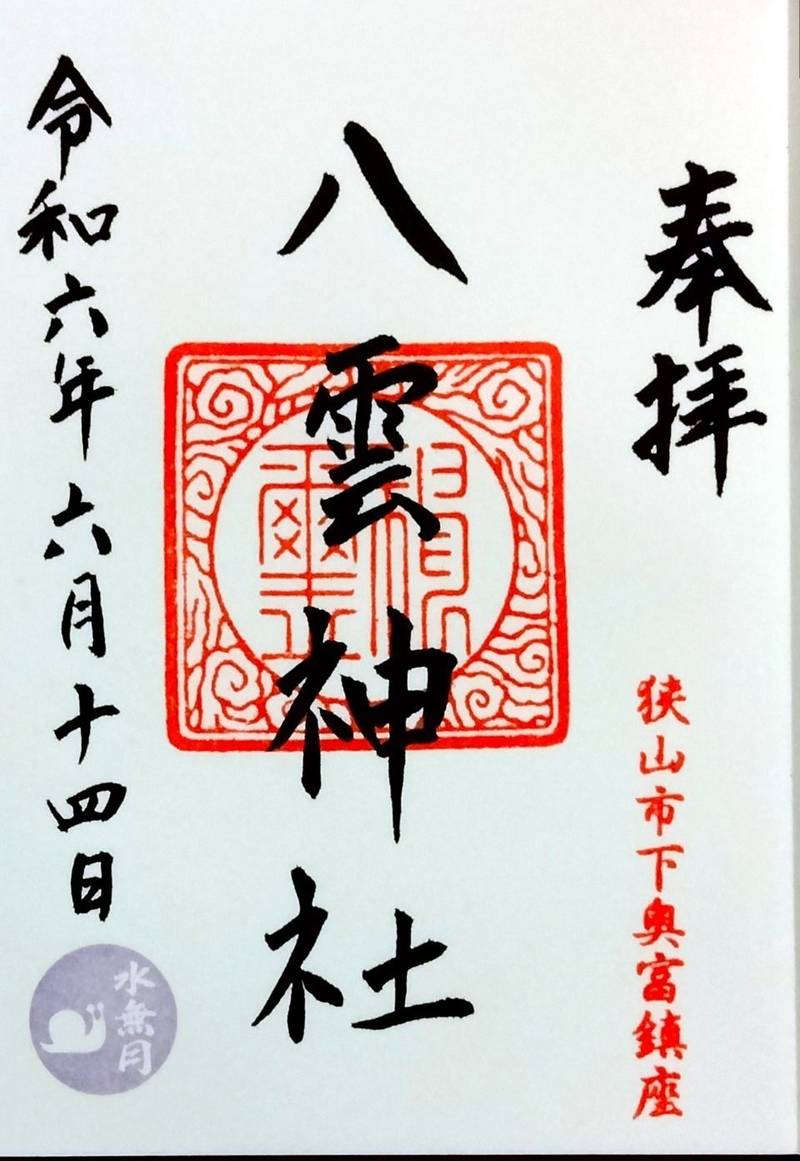 奉拝
狭山市下奥富鎮座
八雲神社
令和六年六月十四日
水無月